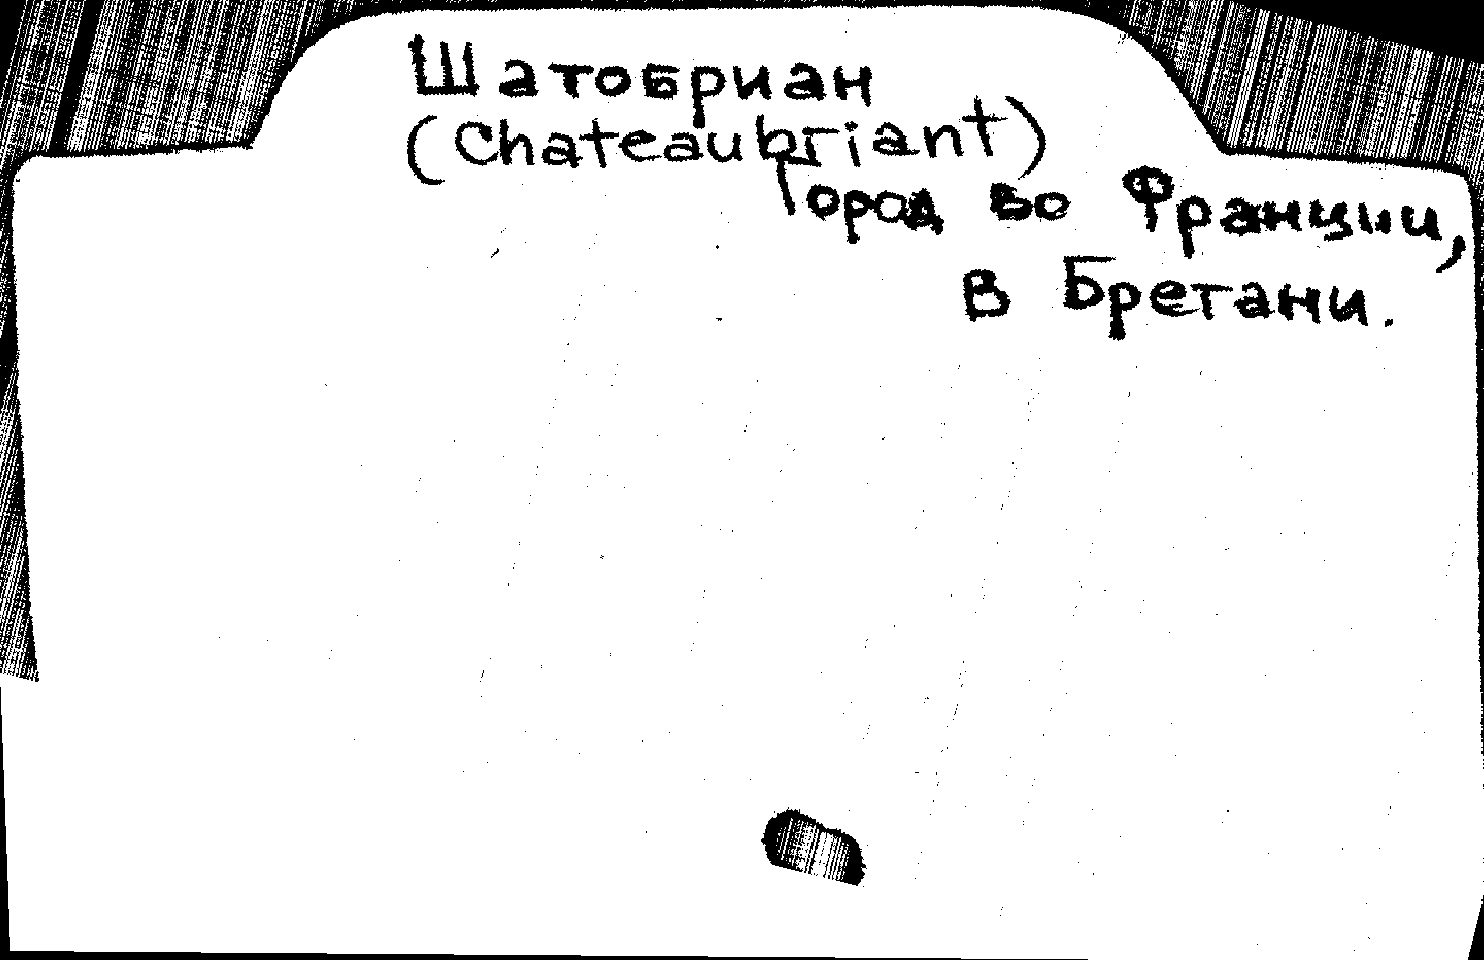 Шатобриан
(Chateaubriant)
Город во Франции,
в Бретани.